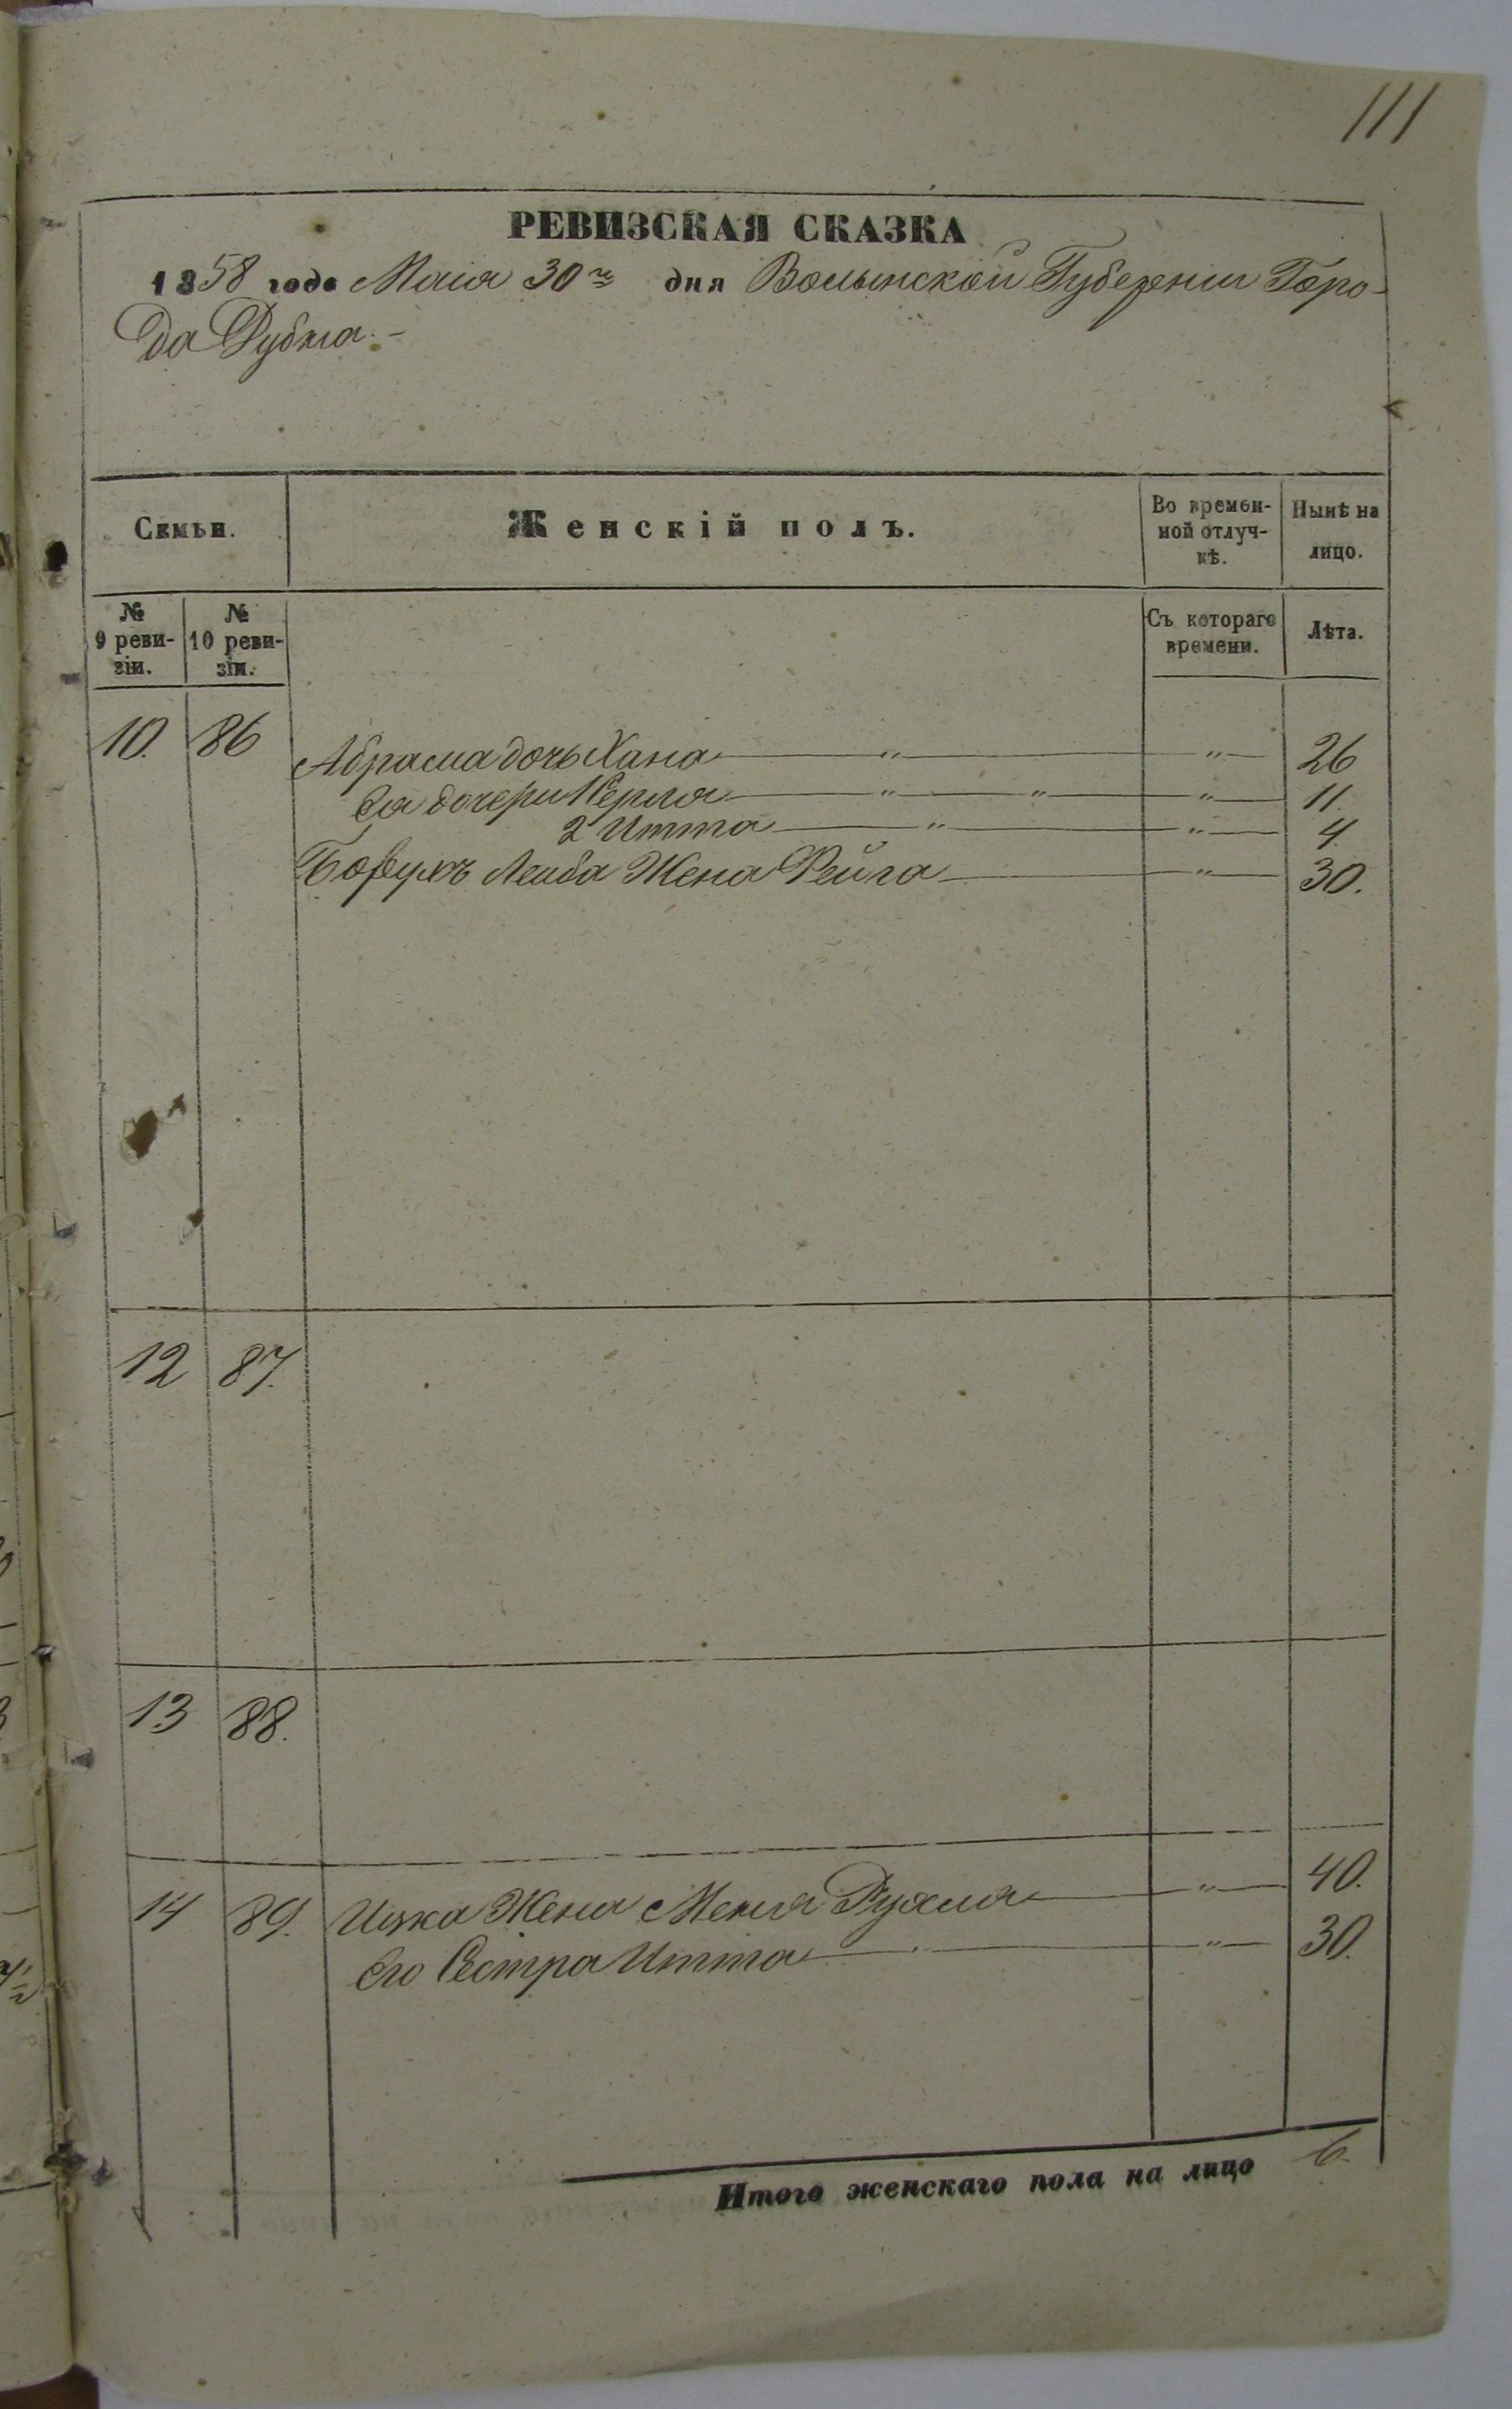 111
РЕВИЗСКАЯ СКАЗКА
1858 года Маія 30го дня Волынской Губерніи Горо-
да Дубна.-
Семьи.
Женскій полъ.
Во времен-
ной отлуч-
кѣ.
Нынѣ на
лицо.
№
9 реви-
зіи.
№
10 реви-
зіи.
Съ котораго
времени.
Лѣта.
10. 86 Абрама дочь Хана " " 26
Ея дочери 1 Перля " " " 11.
2 Итта " " 4.
Борухъ Лейба Жена Фейга " 30.
12 87.
13 88.
14 89. Ицка Жена Меня Рухля " 40.
Его Сестра Итта " " 30.
Итого женскаго пола на лицо 6.